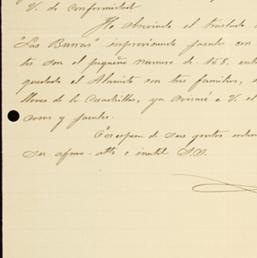 V. de conformidad
No obviando el traslado
"Las Burras" improvisando puente con
tes con el pequeño numero de 158,
quedado el Alamito con tres familias,
llores de la Cuadrilla, ya avisaré a V. el
cosas y puentes.
En espera de sus gratas
Su afmo. atto e inutil S.S.